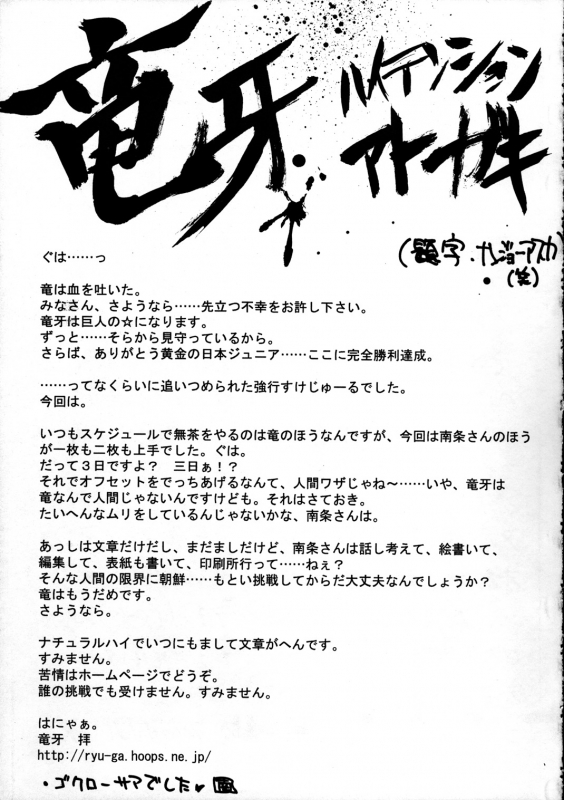 竜牙
ハメイソション
アトーガキ
(題字・ナンジョーアスカ
(笑)
ぐは……っ
竜は血を吐いた。
みなさん、さようなら……先立つ不幸をお許し下さい。
竜牙は巨人の☆になります。
ずっと……そらから見守っているから。
さらば、ありがとう黄金の日本ジュニア……ここに完全勝利達成。
……ってなくらいに追いつめられた強行すけじゅーるでした。
今回は。
いつもスケジュールで無茶をやるのは竜のほうなんですが、今回は南条さんのほう
が一枚も二枚も上手でした。ぐは。
だって３日ですよ？　三日ぁ！？
それでオフセットをでっちあげるなんて、人間ワザじゃね～……いや、竜牙は
竜なんで人間じゃないんですけども。それはさておき。
たいへんなムリをしているんじゃないかな、南条さんは。
あっしは文章だけだし、まだましだけど、南条さんは話し考えて、絵書いて、
編集して、表紙も書いて、印刷所行って……ねぇ？
そんな人間の限界に朝鮮……もとい挑戦してからだ大丈夫なんでしょうか？
竜はもうだめです。
さようなら。
ナチュラルハイでいつにもまして文章がへんです。
すみません。
苦情はホームページでどうぞ。
誰の挑戦でも受けません。すみません。
はにゃぁ。
竜牙　拝
http://ryu-ga.hoops.ne.jp/
・ゴクローサマでした♥